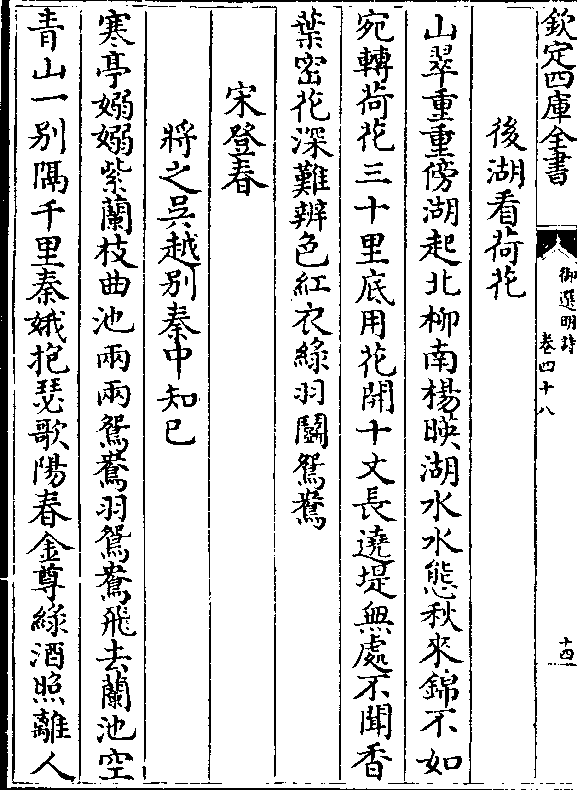 欽定四庫全書
御選明詩
卷四十八
十四
後湖看荷花
山翠重重傍湖起北柳南楊暎湖水水態秋來錦不如
宛轉荷花三十里底用花開十丈長遶堤無處不聞香
葉密花深難辨色紅衣綠羽鬬鴛鴦
宋登春
將之吳越别秦中知己
寒亭嫋嫋紫蘭枝曲池兩兩鴛鴦羽鴛鴦飛去蘭池空
青山一别隔千里秦娥抱瑟歌陽春金尊綠酒照離人